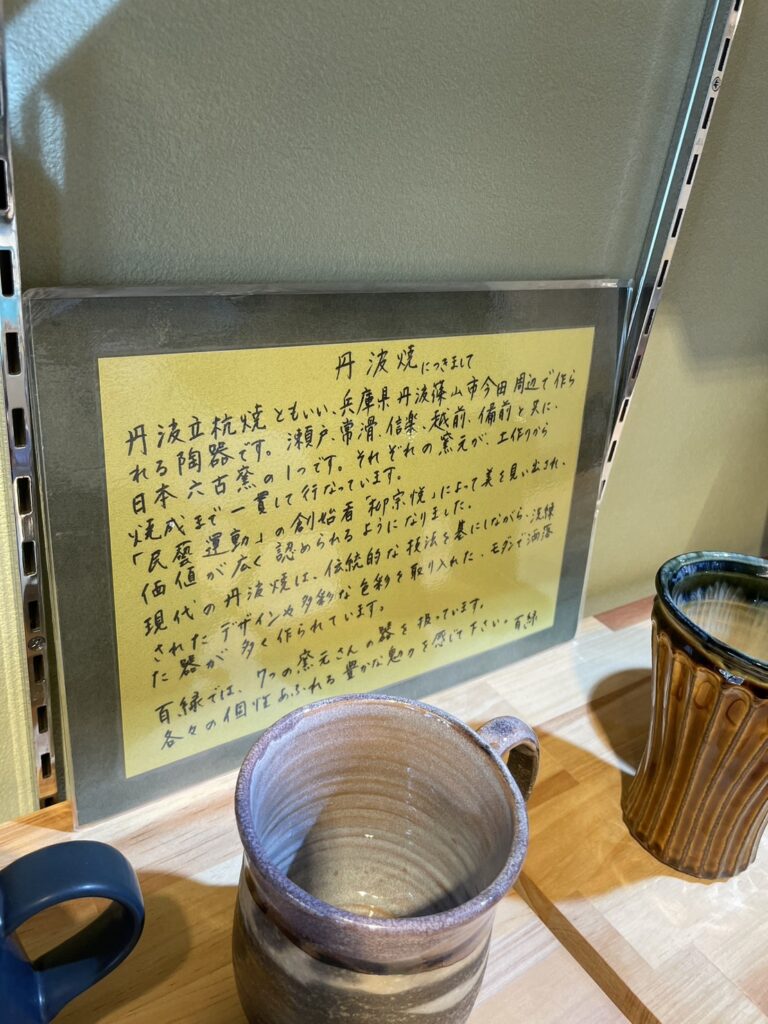 丹波焼につきまして
丹波立杭焼ともいい、兵庫県丹波篠山市今田周辺で作ら
れる陶器です。瀬戸、常滑、信楽、越前、備前と共に、
日本六古窯の1つです。それぞれの窯元が、土作りから
焼成まで一貫して行なっています。
「民藝運動」の創始者「柳宗悦」によって美を見い出され、
価値が広く認められるようになりました。
現代の丹波焼は、伝統的な技法を基にしながら、洗練
されたデザインや多彩な色彩を取り入れた、モダンで洒落
た器が多く作られています。
百緑では、7つの窯元さんの器を扱っています。
各々の個性あふれる豊かな魅力を感じて下さい。百緑